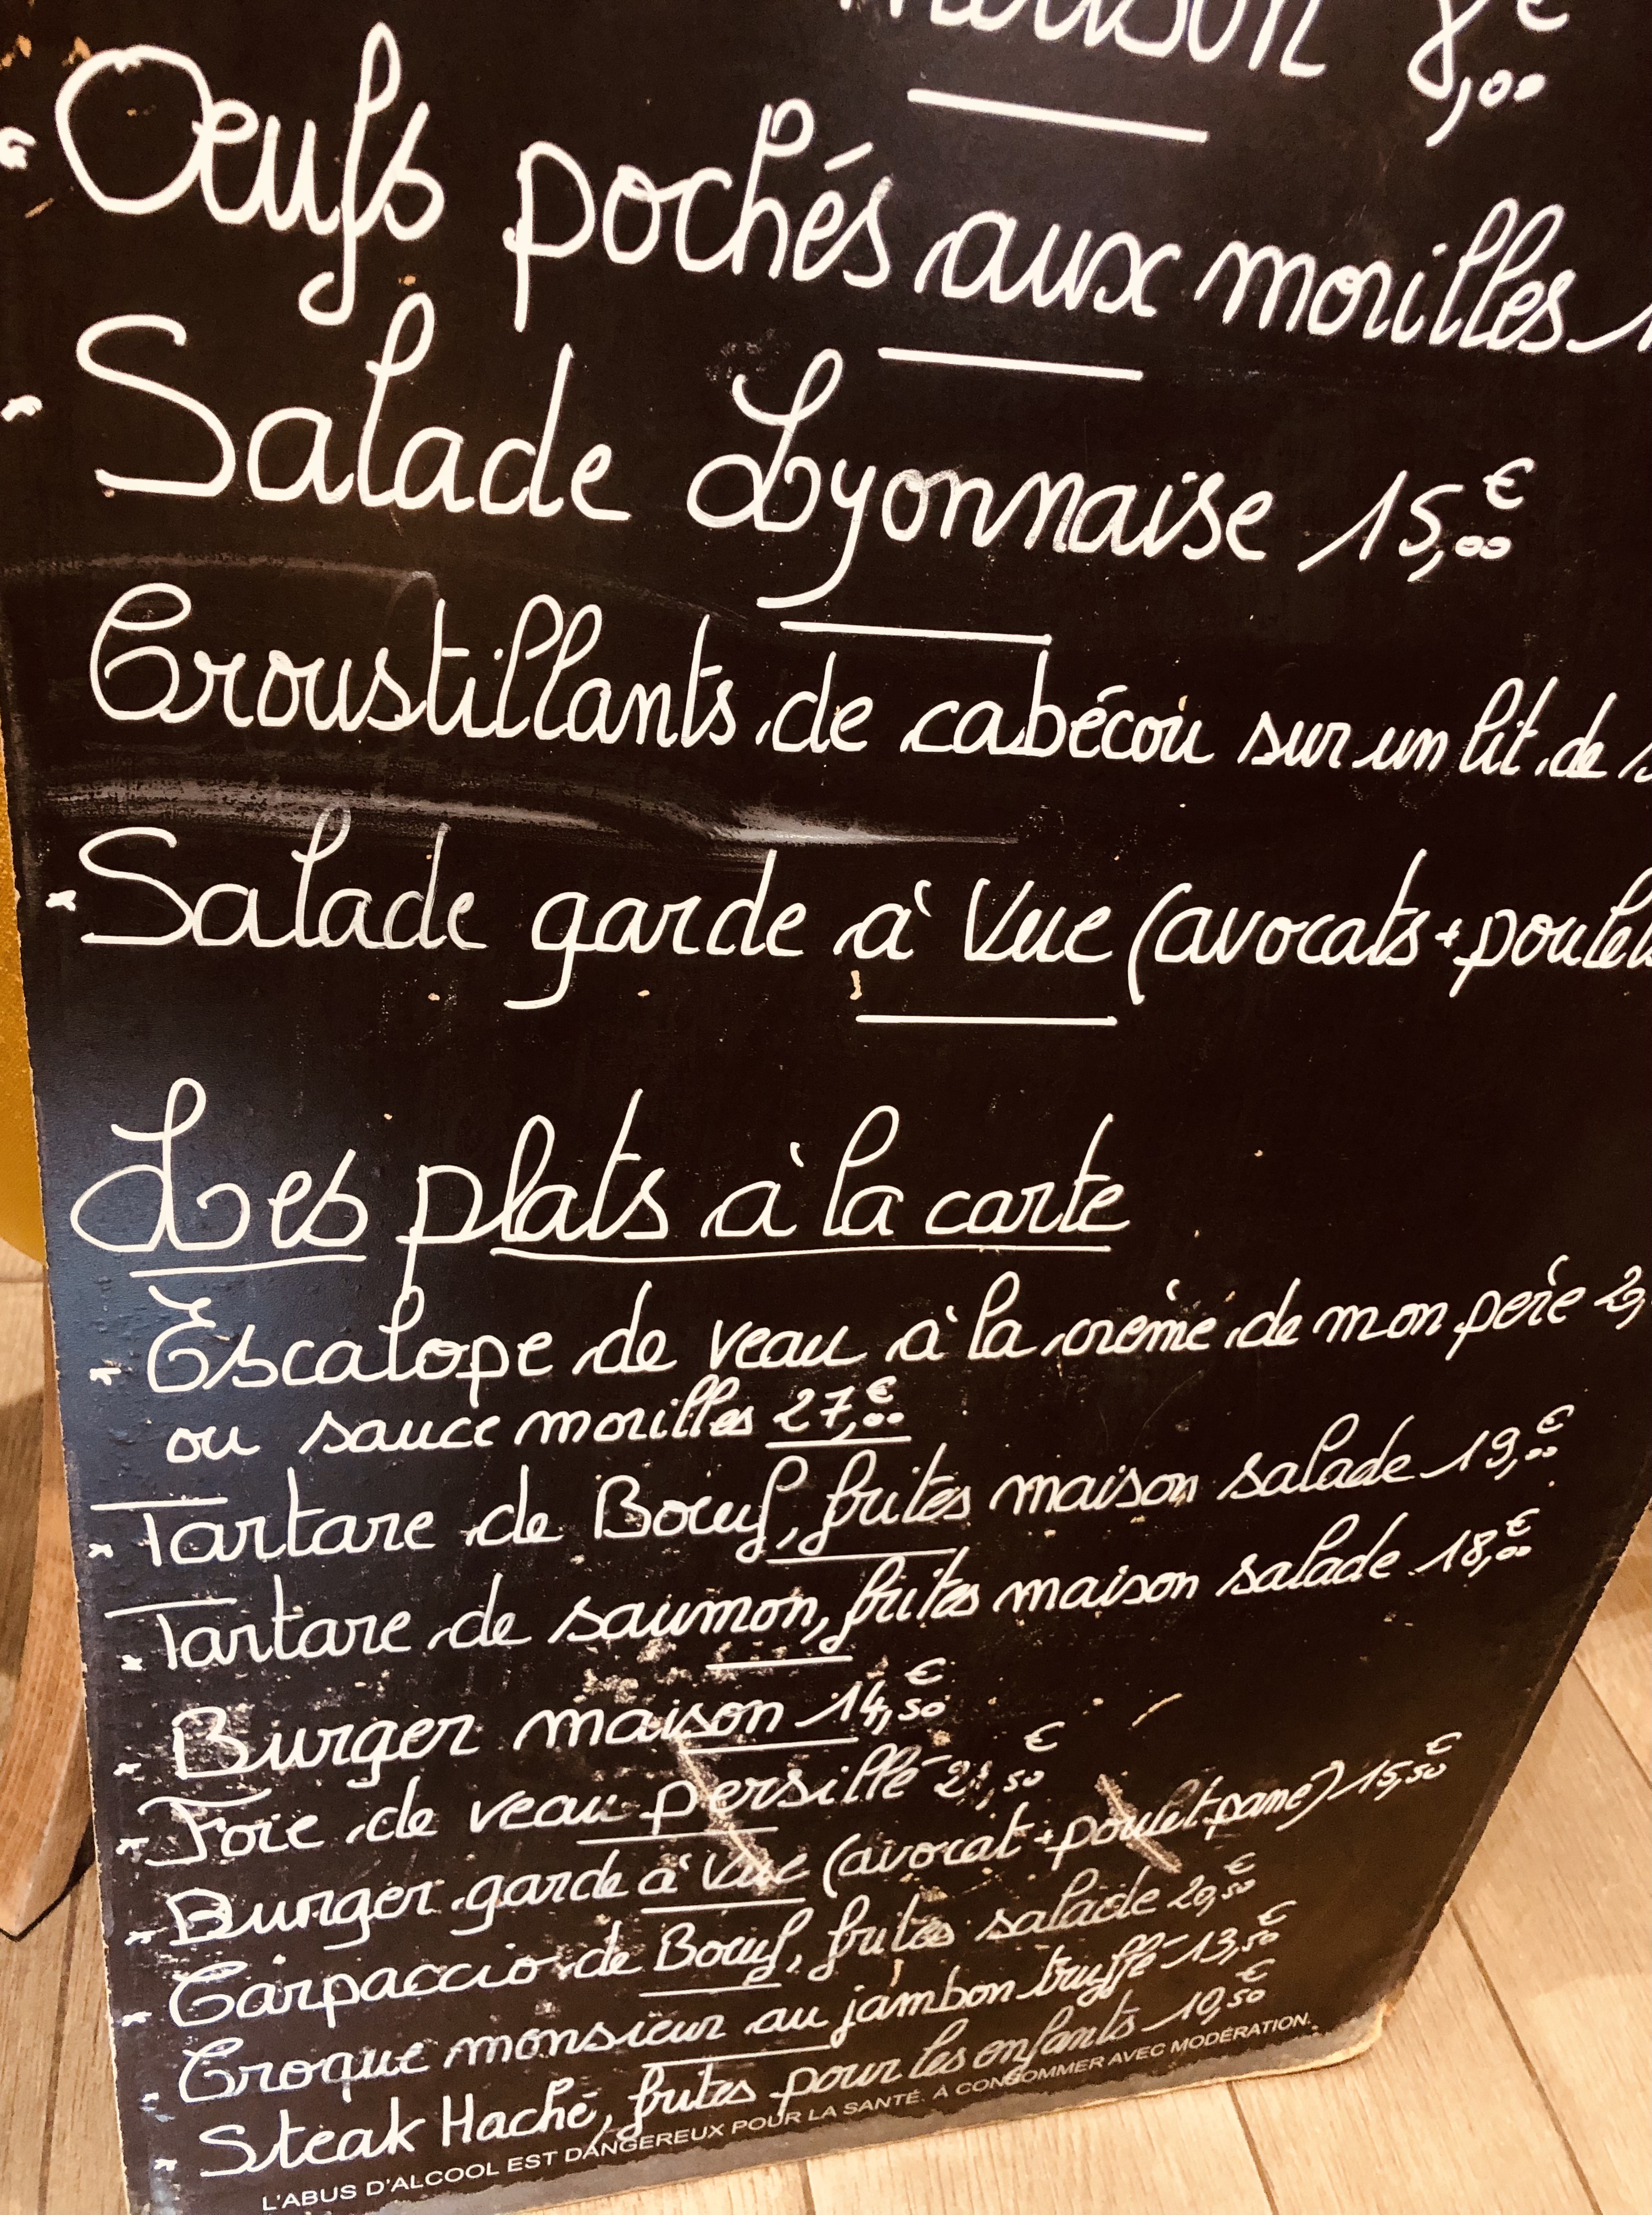 maison 8,00€
Oeufs pochés aux morilles
Salade Lyonnaise 15,00€
Croustillants de cabécou sur un lit de
Salade garde à Vue (avocats + poulet
Les plats à la carte
Escalope de veau à la crème de mon père
ou sauce morilles 27,00€
Tartare de Boeuf, frites maison salade 19,00€
Tartare de saumon, frites maison salade 18,00€
Burger maison 14,50€
Foie de veau persillé 21,50€
Burger garde à Vue (avocat + poulet pané) 15,50€
Carpaccio de Boeuf, frites salade 20,50€
Croque monsieur au jambon truffé 13,50€
Steak Haché, frites pour les enfants 10,50€
L'ABUS D'ALCOOL EST DANGEREUX POUR LA SANTÉ. À CONSOMMER AVEC MODÉRATION.